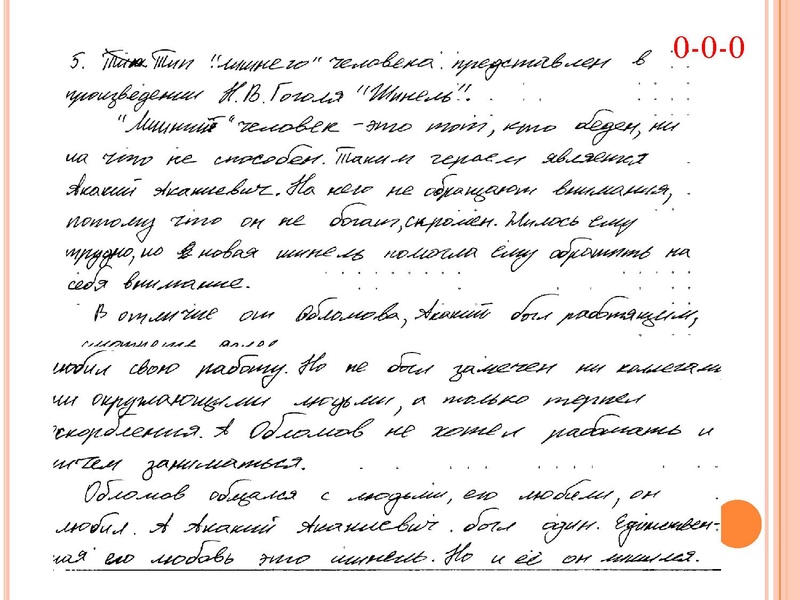 0-0-0
5. Тип "лишнего" человека представлен в
произведении Н.В. Гоголя "Шинель".
"Лишний" человек - это тот, кто беден, ни
на что не способен. Таким героем является
Акакий Акакиевич. На него не обращают внимания,
потому что он не богат, скромен. Жилось ему
трудно, но новая шинель помогла ему обратить на
себя внимание.
В отличие от Обломова, Акакий был работящим,
любил свою работу. Но не был замечен ни коллегами
ни окружающими людьми, а только терпел
оскорбления. А Обломов не хотел работать и
ничем заниматься.
Обломов общался с людьми, его любили, он
любил. А Акакий Акакиевич был один. Единствен-
ная его любовь это шинель. Но и её он лишился.